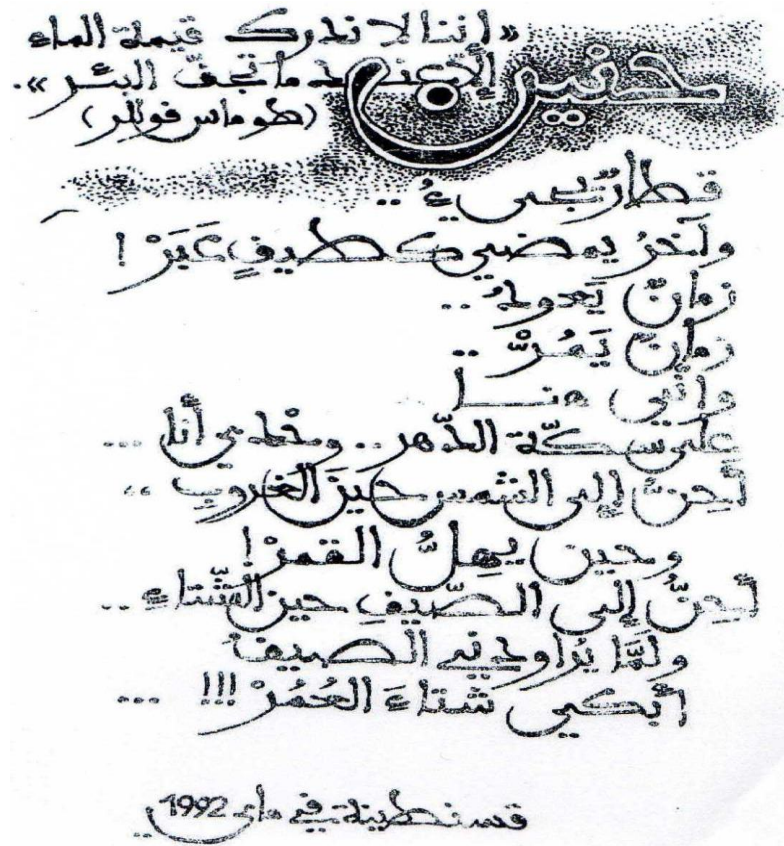 «إننا لا ندرك قيمة الماء
إلا عندما تجفّ البئر».
(طوماس فوللر)
حنين
قطارٌ يجيءُ ..
وآخرُ يمضي كطيفٍ عَبَرْ !
زمانٌ يَعودُ ..
زمانٌ يَمُرّْ ..
وإنّي هنا
على سكّة الدّهر .. وحْدي أنا ...
أحِنُّ إلى الشمس حينَ الغروبِ ،،
وحين يهِلُّ القمرْ !
أحِنُّ إلى الصّيفِ حين الشّتاء ..
ولَمَّا يُراودني الصيفُ
أبكي شتاءَ العُمُرْ !!! ...
قسنطينة في ماي 1992